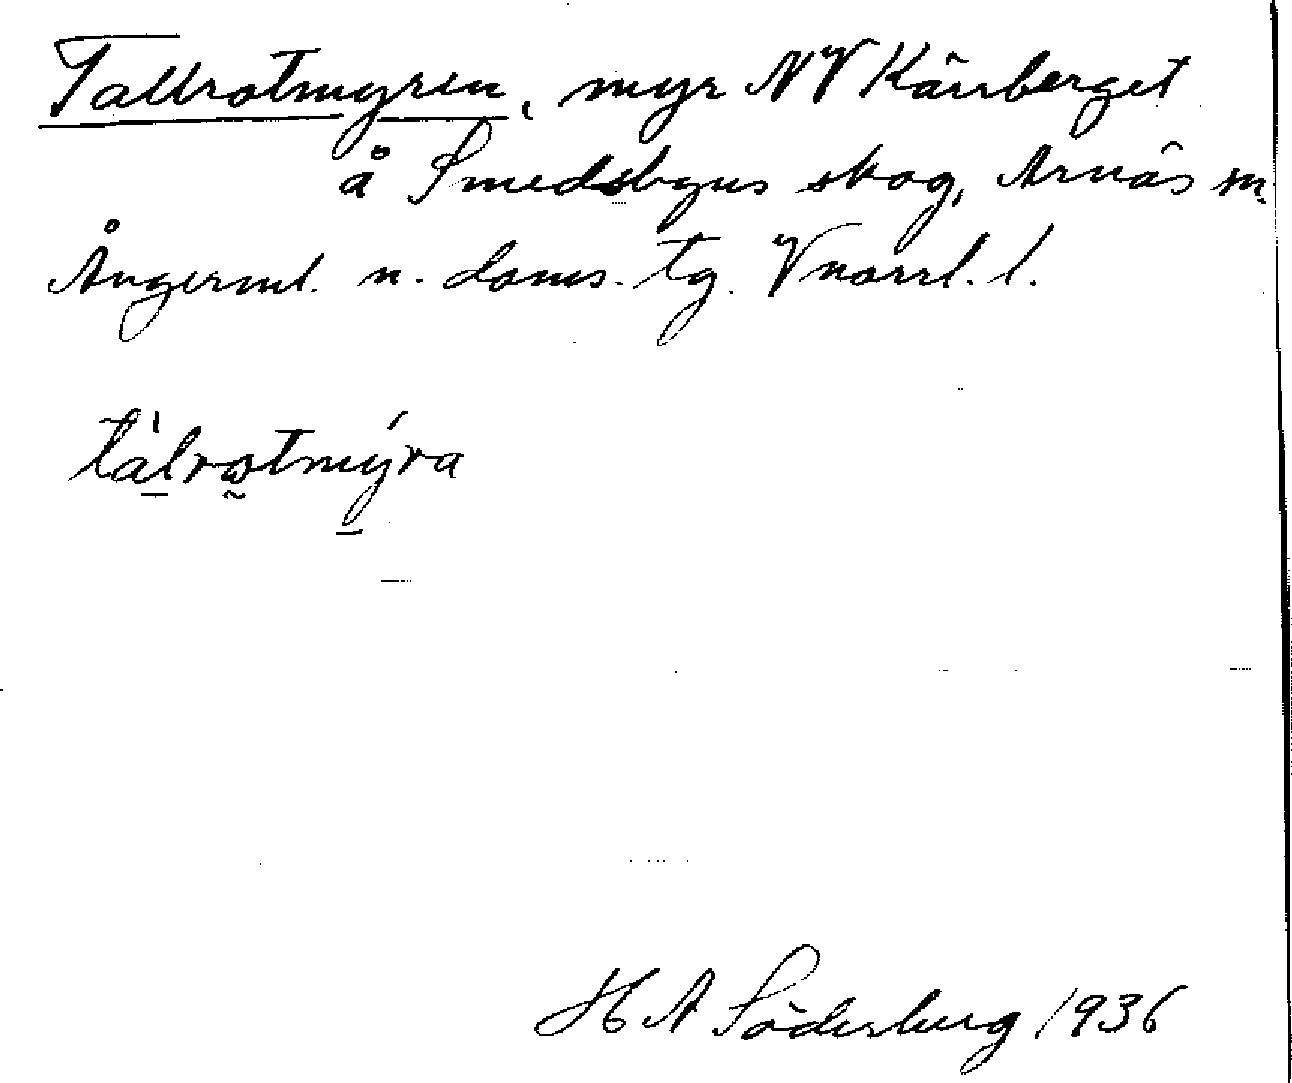 Tallrotmyren, myr NV Kärrberget
å Smedsbyns skog, Arnäs sn.
Ångerml. n. doms. tg. Vnorrl. l.
tàlrotmýra
H A Söderberg 1936